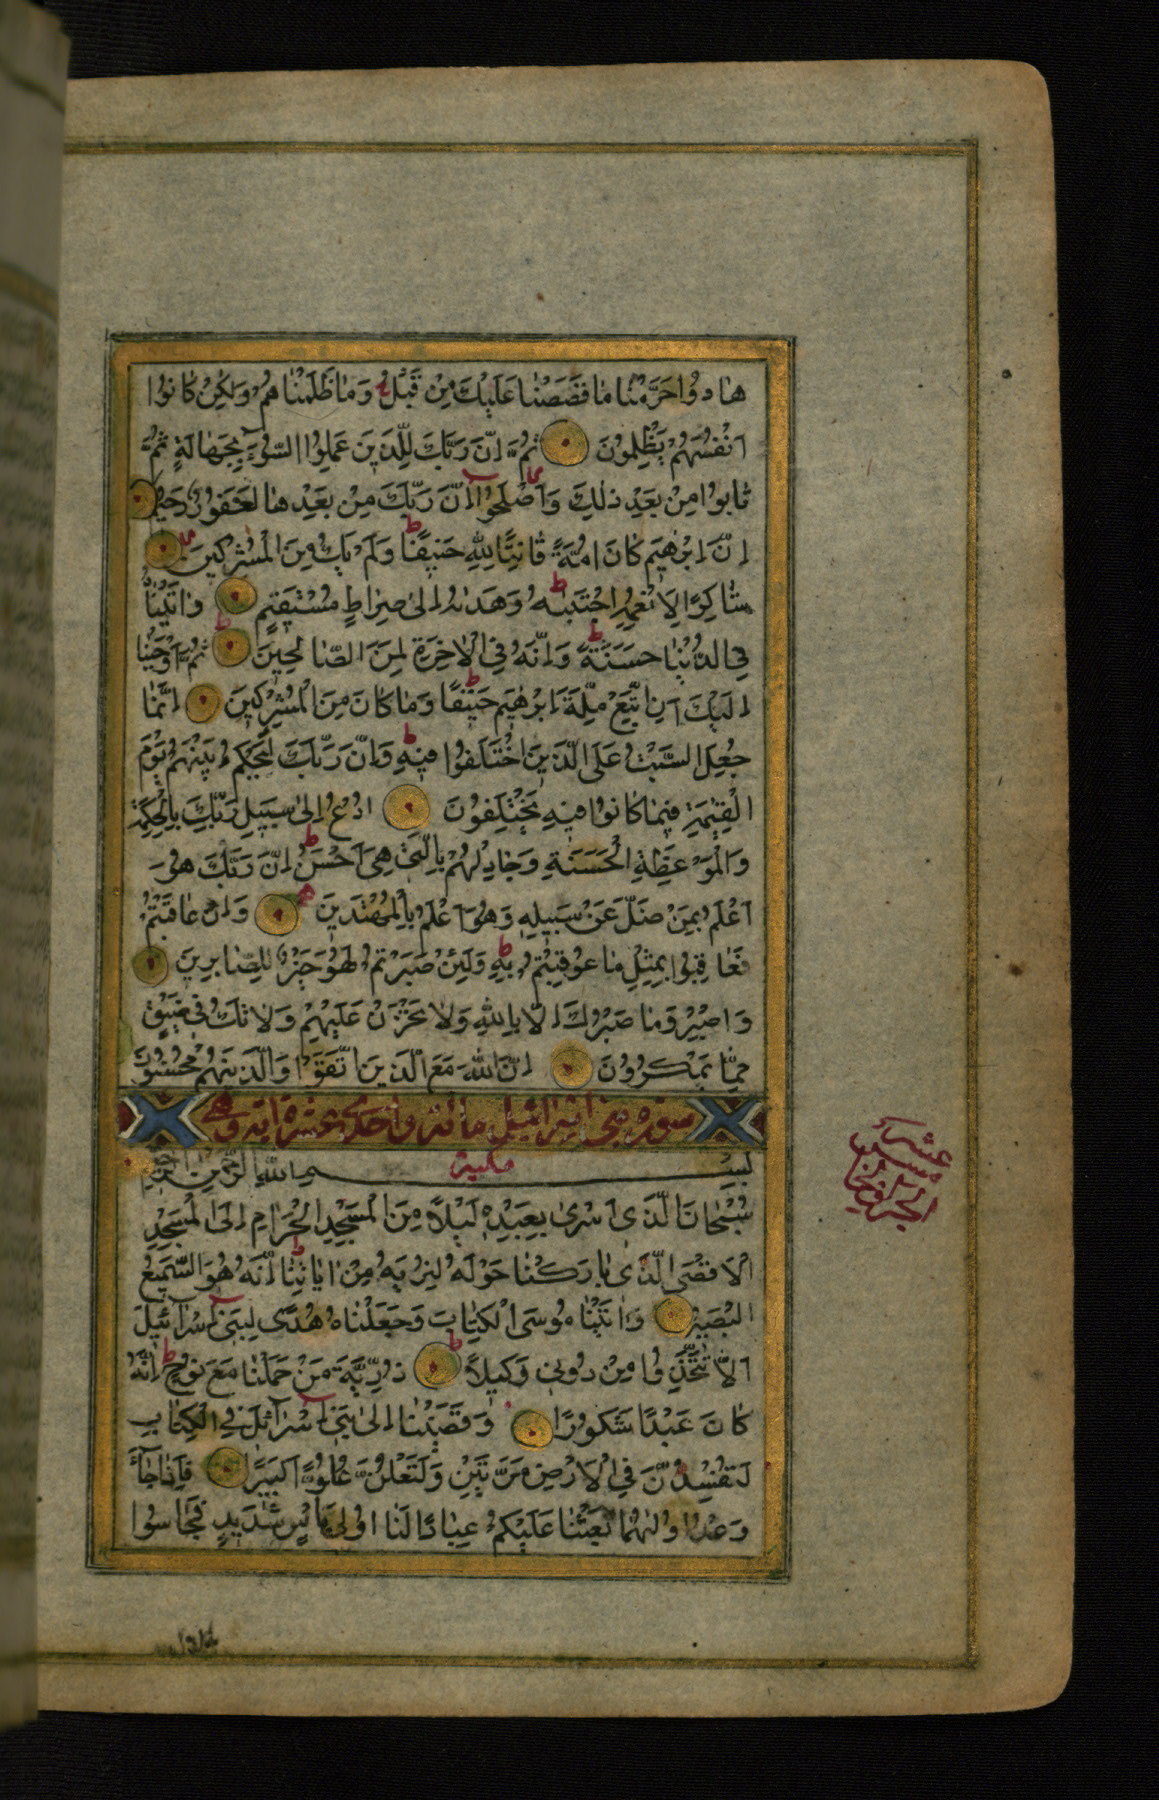 هَادُوا حَرَّمْنَا مَا قَصَصْنَا عَلَيْكَ مِنْ قَبْلُ وَمَا ظَلَمْنَاهُمْ وَلٰكِنْ كَانُوا
اَنْفُسَهُمْ يَظْلِمُونَ ثُمَّ اِنَّ رَبَّكَ لِلَّذِينَ عَمِلُوا السُّوۤءَ بِجَهَالَةٍ ثُمَّ
تَابُوا مِنْ بَعْدِ ذٰلِكَ وَاَصْلَحُوۤا اِنَّ رَبَّكَ مِنْ بَعْدِهَا لَغَفُورٌ رَحِيمٌ
اِنَّ اِبْرٰهِيمَ كَانَ اُمَّةً قَانِتًا لِلّٰهِ حَنِيفًا وَلَمْ يَكُ مِنَ الْمُشْرِكِينَ
شَاكِرًا لِاَنْعُمِهِ اِجْتَبٰيهُ وَهَدٰيهُ اِلٰى صِرَاطٍ مُسْتَقِيمٍ وَاٰتَيْنَاهُ
فِي الدُّنْيَا حَسَنَةً وَاِنَّهُ فِي الْاٰخِرَةِ لَمِنَ الصَّالِحِينَ ثُمَّ اَوْحَيْنَا
اِلَيْكَ اَنِ اتَّبِعْ مِلَّةَ اِبْرٰهِيمَ حَنِيفًا وَمَا كَانَ مِنَ الْمُشْرِكِينَ اِنَّمَا
جُعِلَ السَّبْتُ عَلَى الَّذِينَ اخْتَلَفُوا فِيهِ وَاِنَّ رَبَّكَ لَيَحْكُمُ بَيْنَهُمْ يَوْمَ
الْقِيٰمَةِ فِيمَا كَانُوا فِيهِ يَخْتَلِفُونَ اُدْعُ اِلٰى سَبِيلِ رَبِّكَ بِالْحِكْمَةِ
وَالْمَوْعِظَةِ الْحَسَنَةِ وَجَادِلْهُمْ بِالَّتِي هِيَ اَحْسَنُ اِنَّ رَبَّكَ هُوَ
اَعْلَمُ بِمَنْ ضَلَّ عَنْ سَبِيلِهِ وَهُوَ اَعْلَمُ بِالْمُهْتَدِينَ وَاِنْ عَاقَبْتُمْ
فَعَاقِبُوا بِمِثْلِ مَا عُوقِبْتُمْ بِهِ وَلَئِنْ صَبَرْتُمْ لَهُوَ خَيْرٌ لِلصَّابِرِينَ
وَاصْبِرْ وَمَا صَبْرُكَ اِلَّا بِاللّٰهِ وَلَا تَحْزَنْ عَلَيْهِمْ وَلَا تَكُ فِي ضَيْقٍ
مِمَّا يَمْكُرُونَ اِنَّ اللّٰهَ مَعَ الَّذِينَ اتَّقَوْا وَالَّذِينَ هُمْ مُحْسِنُونَ
سوره بنى اسرائيل مائة واحدى عشرة اية وهي
مكية
بِسْمِ اللّٰهِ الرَّحْمٰنِ الرَّحِيمِ
سُبْحَانَ الَّذِي اَسْرٰى بِعَبْدِهِ لَيْلًا مِنَ الْمَسْجِدِ الْحَرَامِ اِلَى الْمَسْجِدِ
الْاَقْصَى الَّذِي بَارَكْنَا حَوْلَهُ لِنُرِيَهُ مِنْ اٰيَاتِنَا اِنَّهُ هُوَ السَّمِيعُ
الْبَصِيرُ وَاٰتَيْنَا مُوسَى الْكِتَابَ وَجَعَلْنَاهُ هُدًى لِبَنِيۤ اِسْرَآئِيلَ
اَلَّا تَتَّخِذُوا مِنْ دُونِي وَكِيلًا ذُرِّيَّةَ مَنْ حَمَلْنَا مَعَ نُوحٍ اِنَّهُ
كَانَ عَبْدًا شَكُورًا وَقَضَيْنَا اِلٰى بَنِيۤ اِسْرَآئِلَ فِي الْكِتَابِ
لَتُفْسِدُنَّ فِي الْاَرْضِ مَرَّتَيْنِ وَلَتَعْلُنَّ عُلُوًّا كَبِيرًا فَاِذَا جَآءَ
وَعْدُ اُولٰيهُمَا بَعَثْنَا عَلَيْكُمْ عِبَادًا لَنَا اُولِي بَأْسٍ شَدِيدٍ فَجَاسُوا